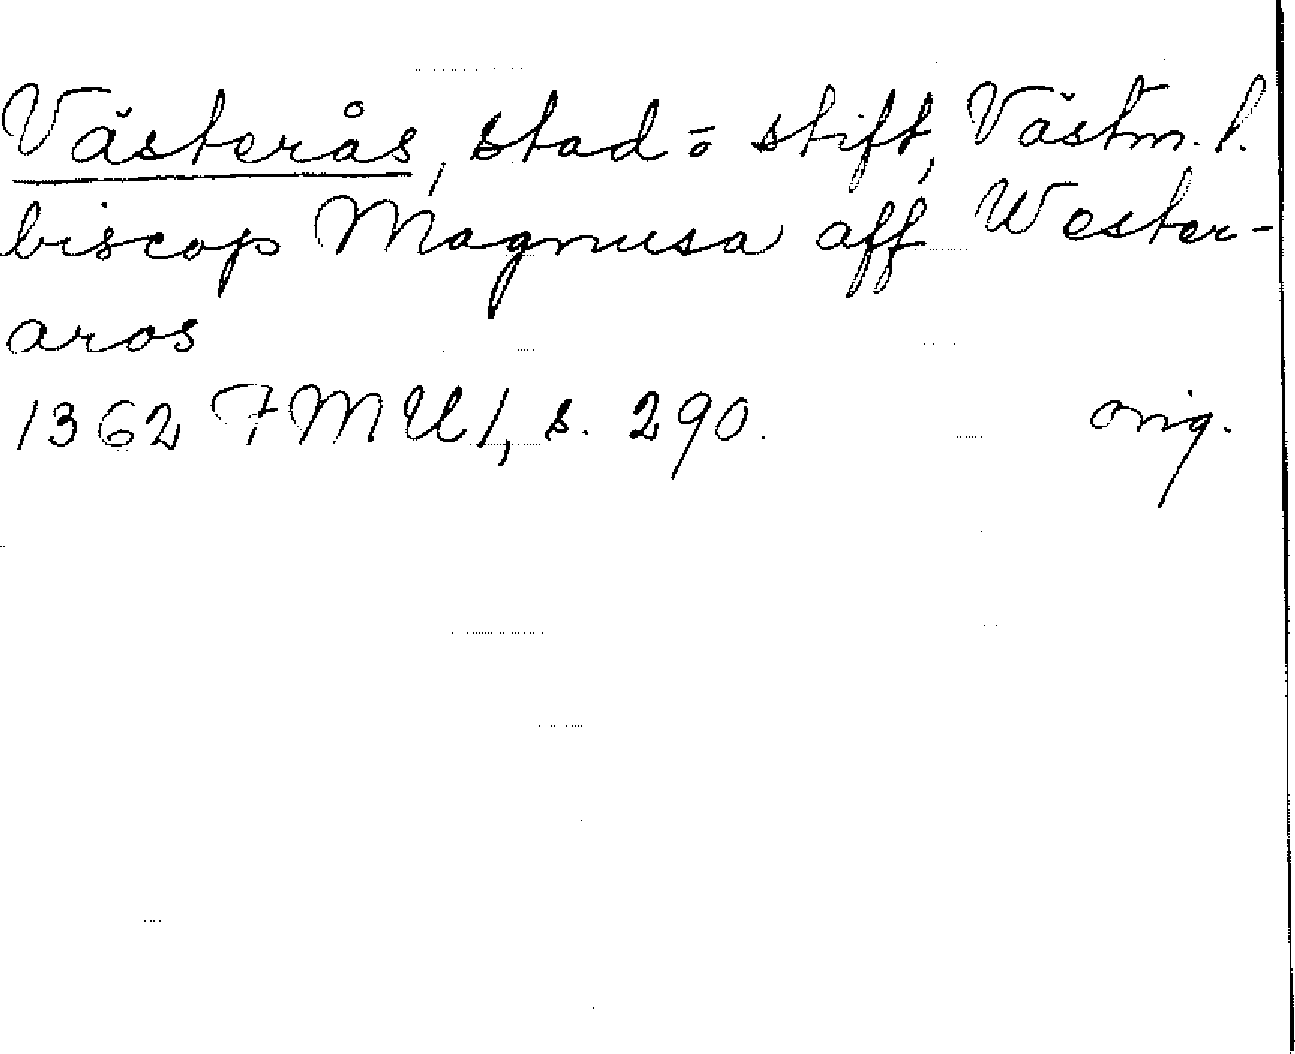 Västerås, stad o stift, Västm. l.
biscop Magnusa aff Wester-
aros
1362 FMU 1, s. 290. orig.